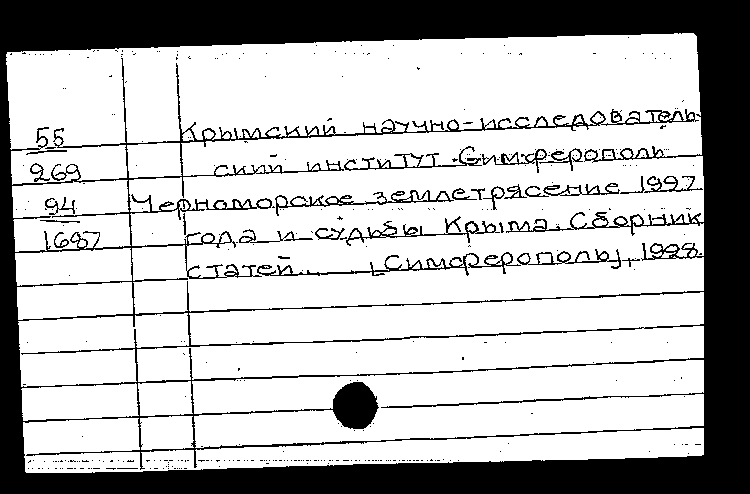 55 Крымский научно-исследователь-
269 ский институт. Симферополь
94 Черноморское землетрясение 1927
1687 года и судьбы Крыма. Сборник
статей... [Симферополь], 1928.